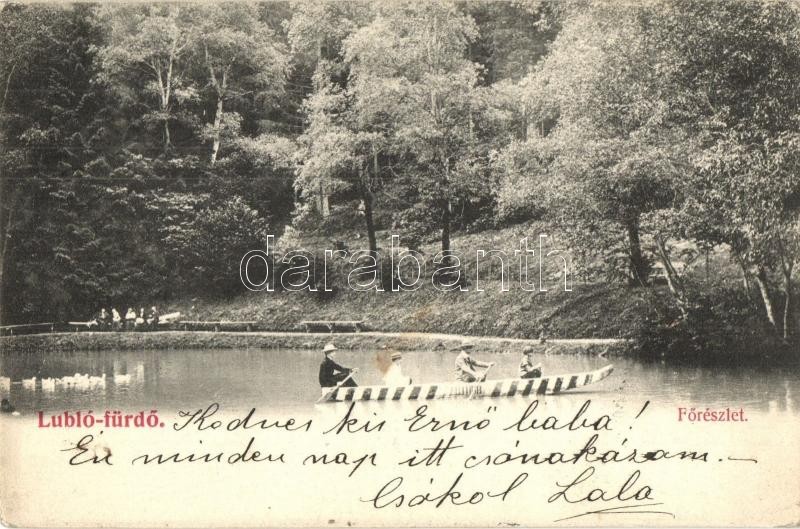 darabanth
Lubló-fürdő. Kedves kis Ernő baba! Főrészlet.
Én minden nap itt csónakázom. —
Csókol Lala